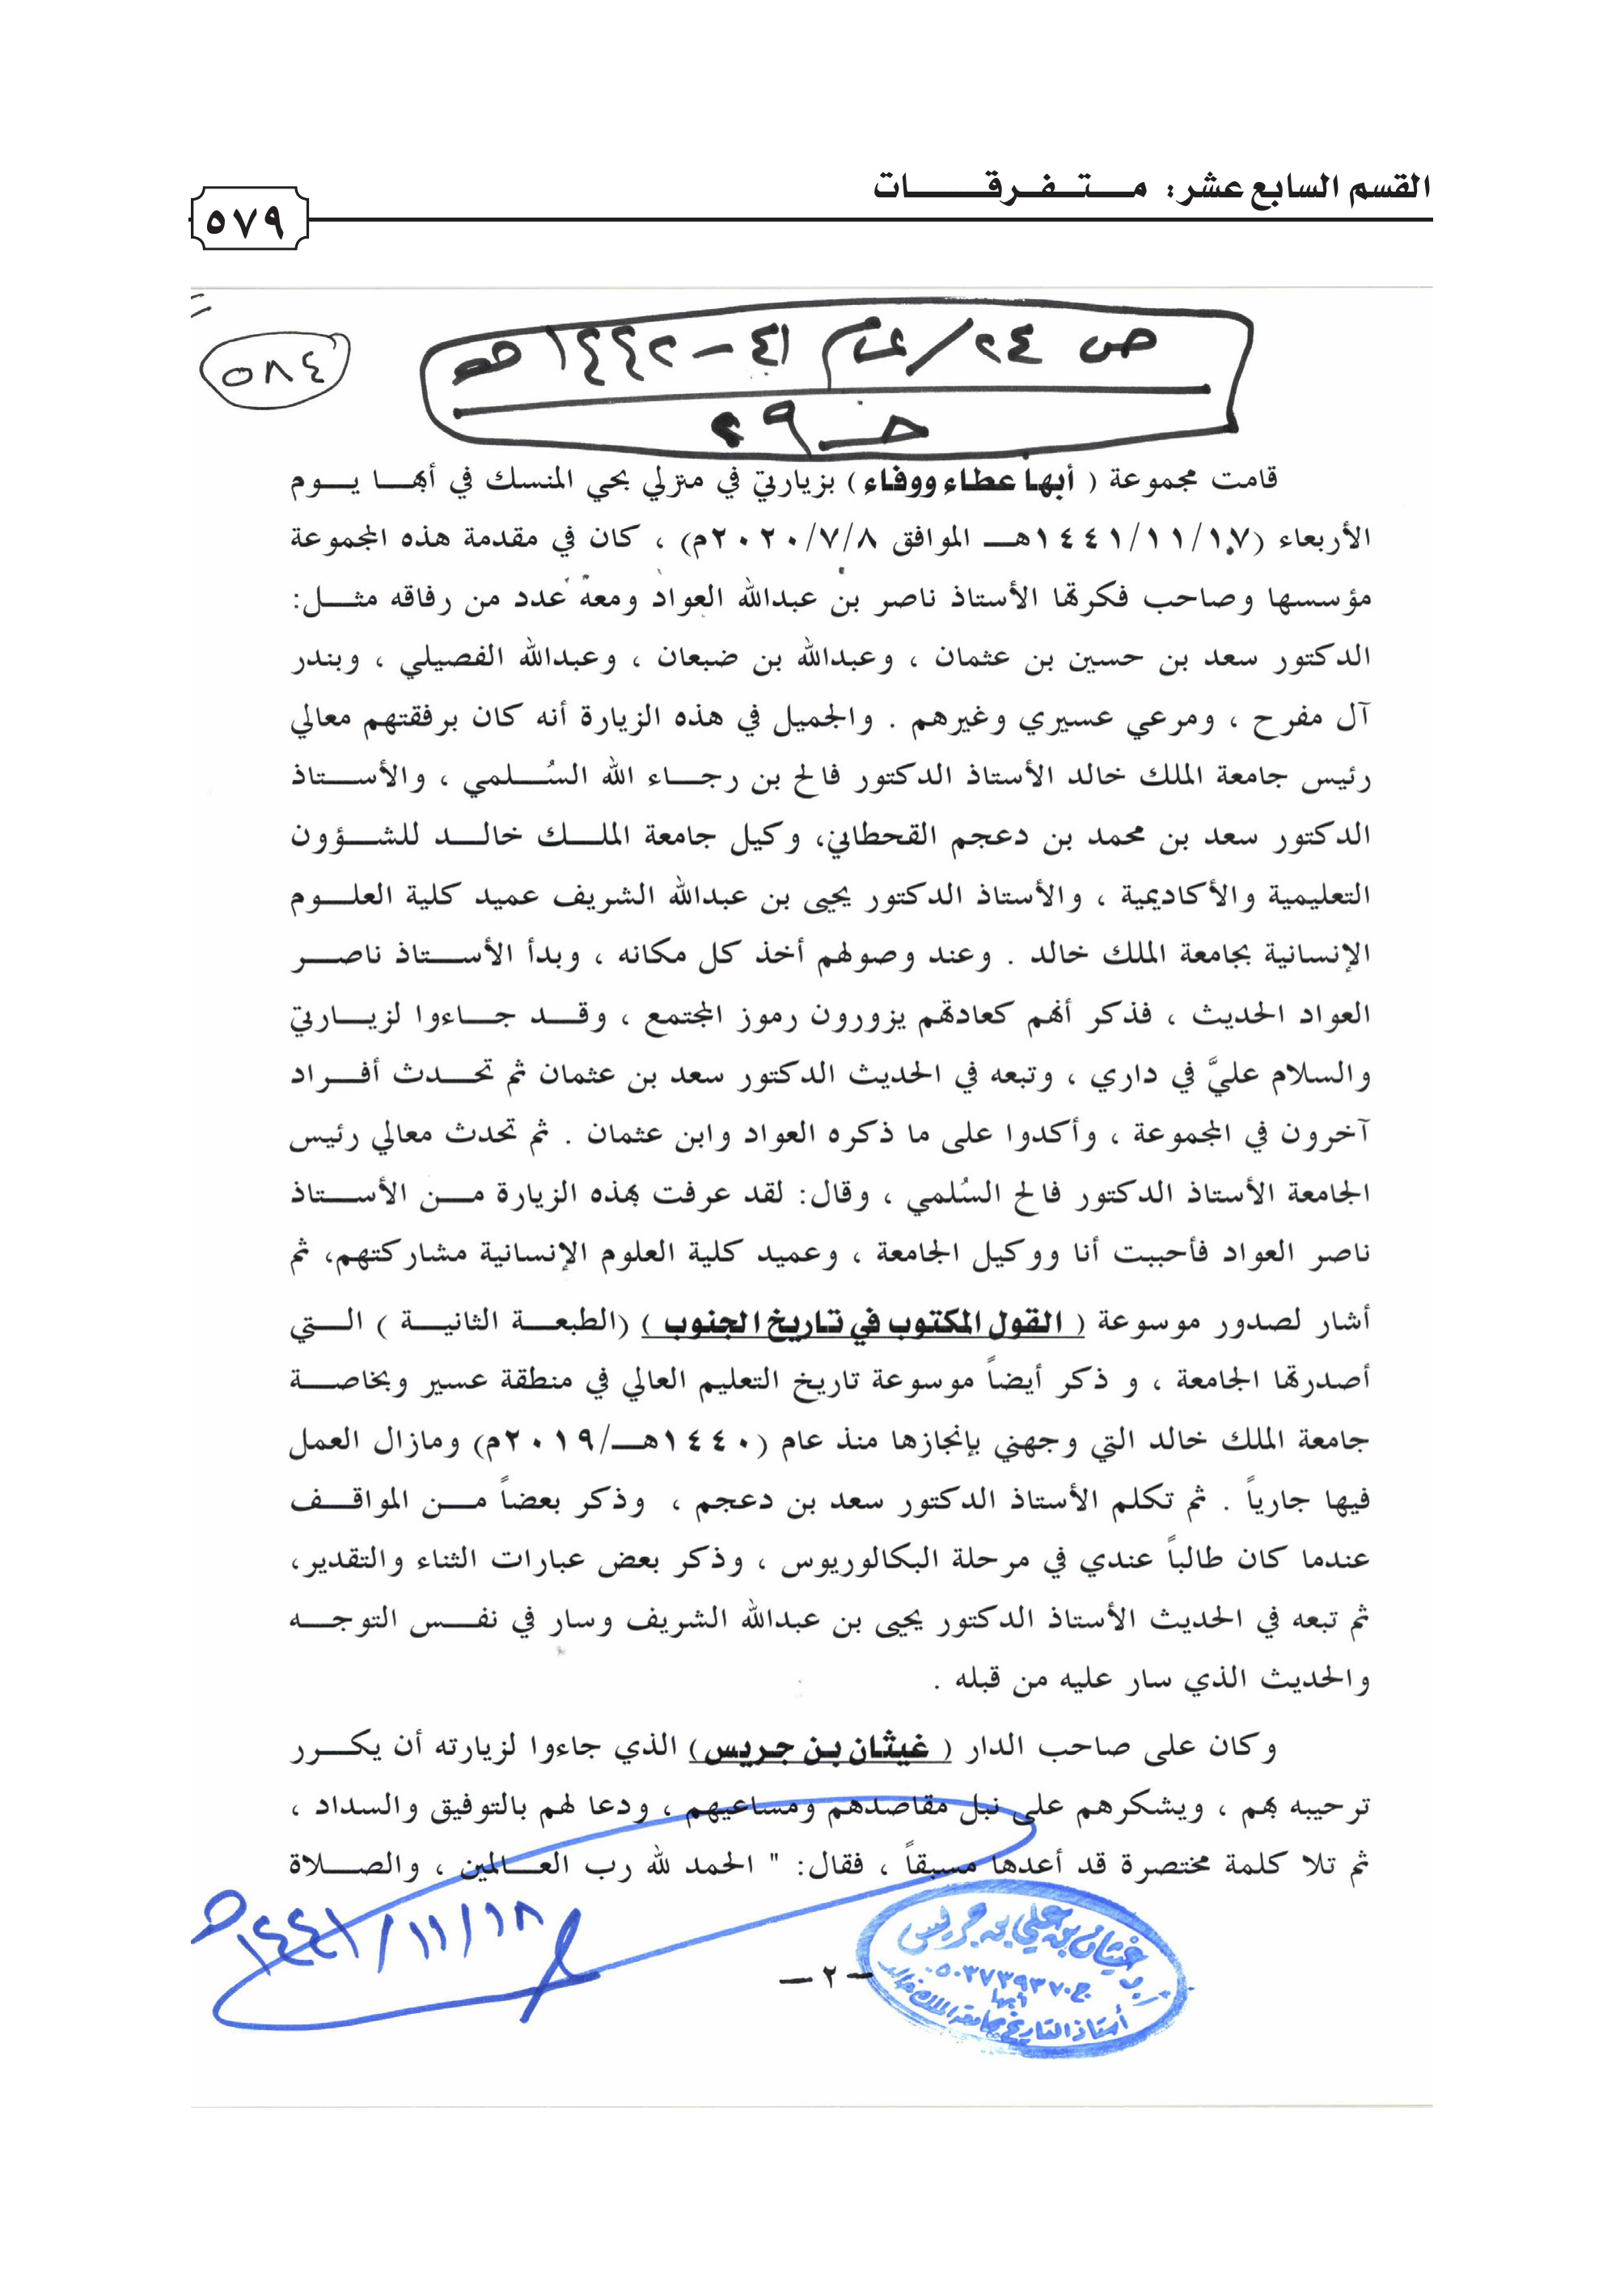 القسم السابع عشر: متفرقات
٥٧٩
ص ٢٤/عام ٤١-١٤٤٢هـ
٥٨٤
حـ ٢٩
قامت مجموعة ( أبها عطاء ووفاء ) بزيارتي في منزلي بحي المنسك في أبها يوم
الأربعاء (١٤٤١/١١/١٧هـ الموافق ٢٠٢٠/٧/٨م) ، كان في مقدمة هذه المجموعة
مؤسسها وصاحب فكرتها الأستاذ ناصر بن عبدالله العواد ومعه عدد من رفاقه مثل:
الدكتور سعد بن حسين بن عثمان ، وعبدالله بن ضبعان ، وعبدالله الفصيلي ، وبندر
آل مفرح ، ومرعي عسيري وغيرهم . والجميل في هذه الزيارة أنه كان برفقتهم معالي
رئيس جامعة الملك خالد الأستاذ الدكتور فالح بن رجاء الله السُلمي ، والأستاذ
الدكتور سعد بن محمد بن دعجم القحطاني، وكيل جامعة الملك خالد للشؤون
التعليمية والأكاديمية ، والأستاذ الدكتور يحيى بن عبدالله الشريف عميد كلية العلوم
الإنسانية بجامعة الملك خالد . وعند وصولهم أخذ كل مكانه ، وبدأ الأستاذ ناصر
العواد الحديث ، فذكر أنهم كعادتهم يزورون رموز المجتمع ، وقد جاءوا لزيارتي
والسلام عليَّ في داري ، وتبعه في الحديث الدكتور سعد بن عثمان ثم تحدث أفراد
آخرون في المجموعة ، وأكدوا على ما ذكره العواد وابن عثمان . ثم تحدث معالي رئيس
الجامعة الأستاذ الدكتور فالح السُلمي ، وقال: لقد عرفت بهذه الزيارة من الأستاذ
ناصر العواد فأحببت أنا ووكيل الجامعة ، وعميد كلية العلوم الإنسانية مشاركتهم، ثم
أشار لصدور موسوعة ( القول المكتوب في تاريخ الجنوب ) (الطبعة الثانية ) التي
أصدرتها الجامعة ، و ذكر أيضاً موسوعة تاريخ التعليم العالي في منطقة عسير وبخاصة
جامعة الملك خالد التي وجهني بإنجازها منذ عام (١٤٤٠هـ/٢٠١٩م) ومازال العمل
فيها جارياً . ثم تكلم الأستاذ الدكتور سعد بن دعجم ، وذكر بعضاً من المواقف
عندما كان طالباً عندي في مرحلة البكالوريوس ، وذكر بعض عبارات الثناء والتقدير،
ثم تبعه في الحديث الأستاذ الدكتور يحيى بن عبدالله الشريف وسار في نفس التوجه
والحديث الذي سار عليه من قبله .
وكان على صاحب الدار ( غيثان بن جريس ) الذي جاءوا لزيارته أن يكرر
ترحيبه بهم ، ويشكرهم على نبل مقاصدهم ومساعيهم ، ودعا لهم بالتوفيق والسداد ،
ثم تلا كلمة مختصرة قد أعدها مسبقاً ، فقال: " الحمد لله رب العالمين ، والصلاة
١٤٤١/١١/١٨هـ
أ.د غيثان بن علي بن جريس
ج ٠٥٠٣٧٣٩٣٧٠
أبها
أستاذ التاريخ بجامعة الملك خالد
— ٢ —